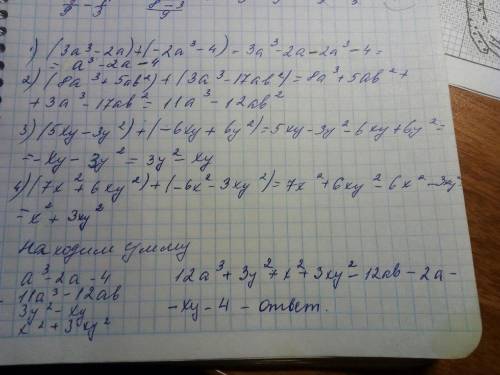 1) (3a³-2a)+(-2a³-4)=3a³-2a-2a³-4=
= a³-2a-4
2) (8a³+5ab²)+(3a³-17ab²)=8a³+5ab²+
+3a³-17ab²=11a³-12ab²
3) (5xy-3y²)+(-6xy+6y²)=5xy-3y²-6xy+6y²=
=-xy-3y²=3y²-xy
4) (7x²+6xy²)+(-6x²-3xy²)=7x²+6xy²-6x²-3xy²
=x²+3xy²
Находим сумму
a³-2a-4
11a³-12ab
3y²-xy
x²+3xy²
12a³+3y²+x²+3xy²-12ab-2a-
-xy-4-ответ.